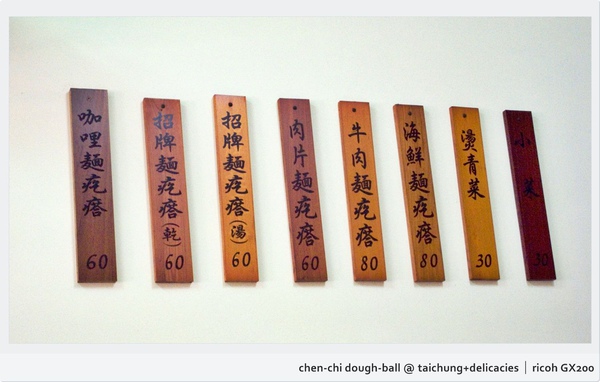 咖哩麵疙瘩
60
招牌麵疙瘩(乾)
60
招牌麵疙瘩(湯)
60
肉片麵疙瘩
60
牛肉麵疙瘩
80
海鮮麵疙瘩
80
燙青菜
30
小菜
30
chen-chi dough-ball @ taichung+delicacies | ricoh GX200